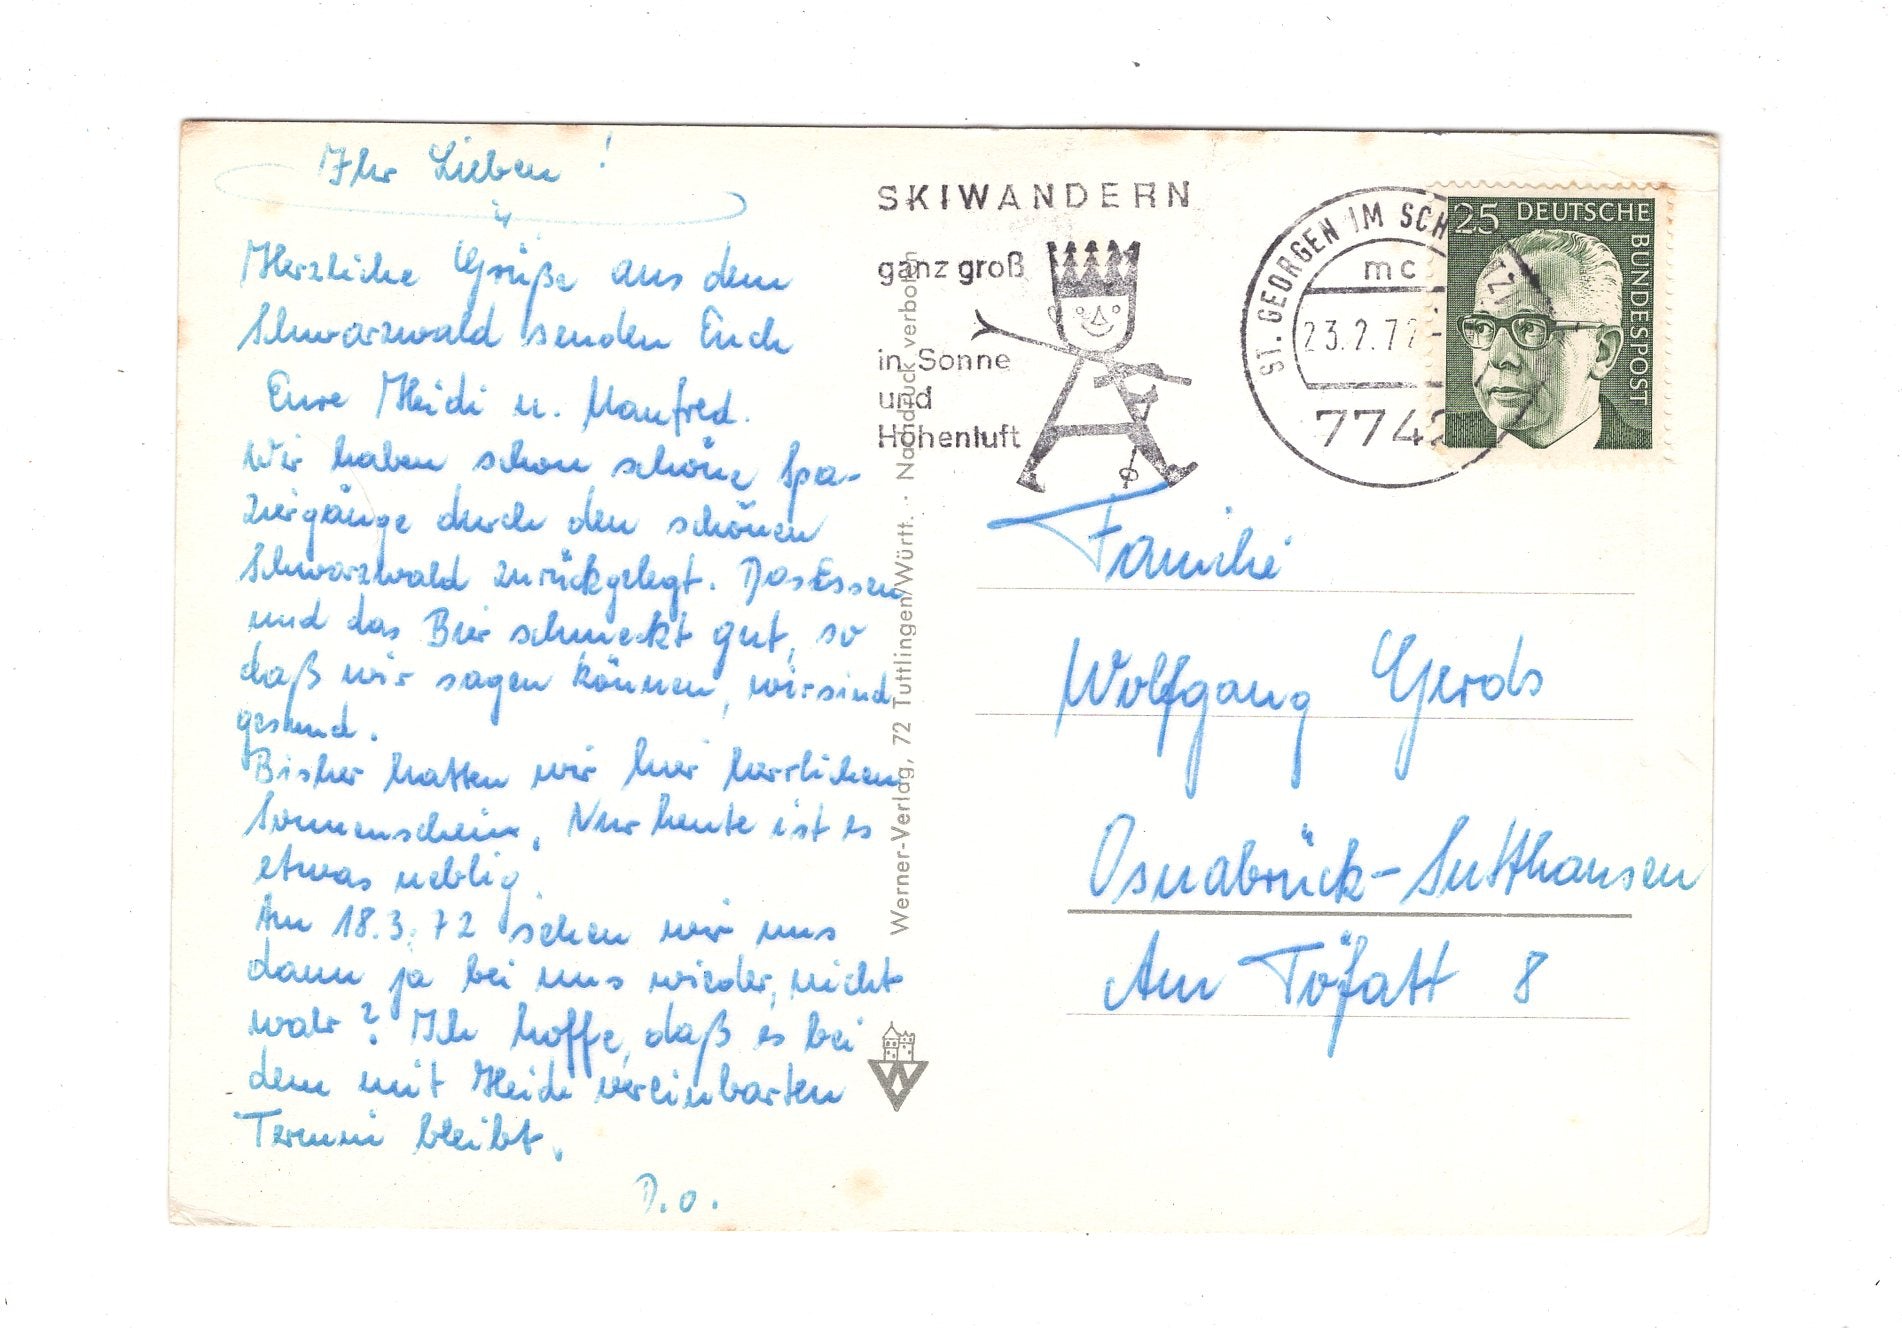 Ihr Lieben!
Herzliche Grüße aus dem
Schwarzwald senden Euch
Eure Heidi u. Manfred.
Wir haben schon schöne Spa-
ziergänge durch den schönen
Schwarzwald zurückgelegt. Das Essen
und das Bier schmeckt gut, so
daß wir sagen können, wir sind
gesund.
Bisher hatten wir hier herrlichen
Sonnenschein. Nur heute ist es
etwas neblig.
Am 18.3.72 sehen wir uns
dann ja bei uns wieder, nicht
wahr? Ich hoffe, daß es bei
dem mit Heidi vereinbarten
Termin bleibt.
D.O.
Werner-Verlag, 72 Tuttlingen/Württ. · Nachdruck verboten
SKIWANDERN
ganz groß
in Sonne
und
Höhenluft
ST. GEORGEN IM SCH
mc
23.2.72
7742
25 DEUTSCHE
BUNDESPOST
Familie
Wolfgang Gerds
Osnabrück-Sutthausen
Am Töfatt 8
W